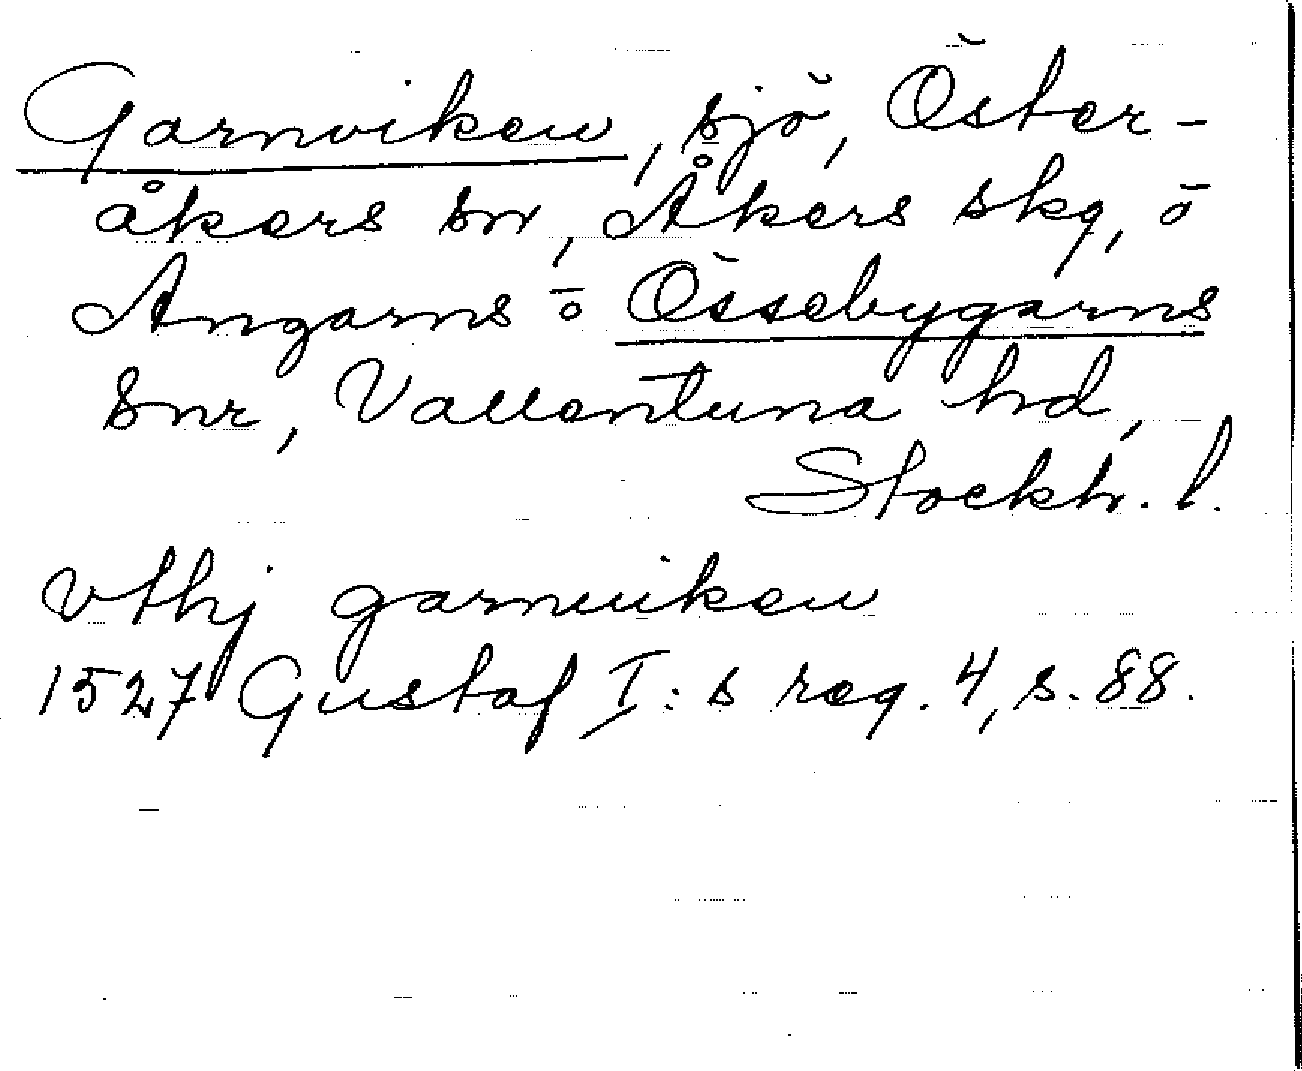 Garnviken, sjö, Öster-
åkers sn, Åkers skg, o
Angarns o Össebygarns
snr, Vallentuna hd,
Stockh. l.
vthj garnuiken
1527 Gustaf I:s reg. 4, s. 88.